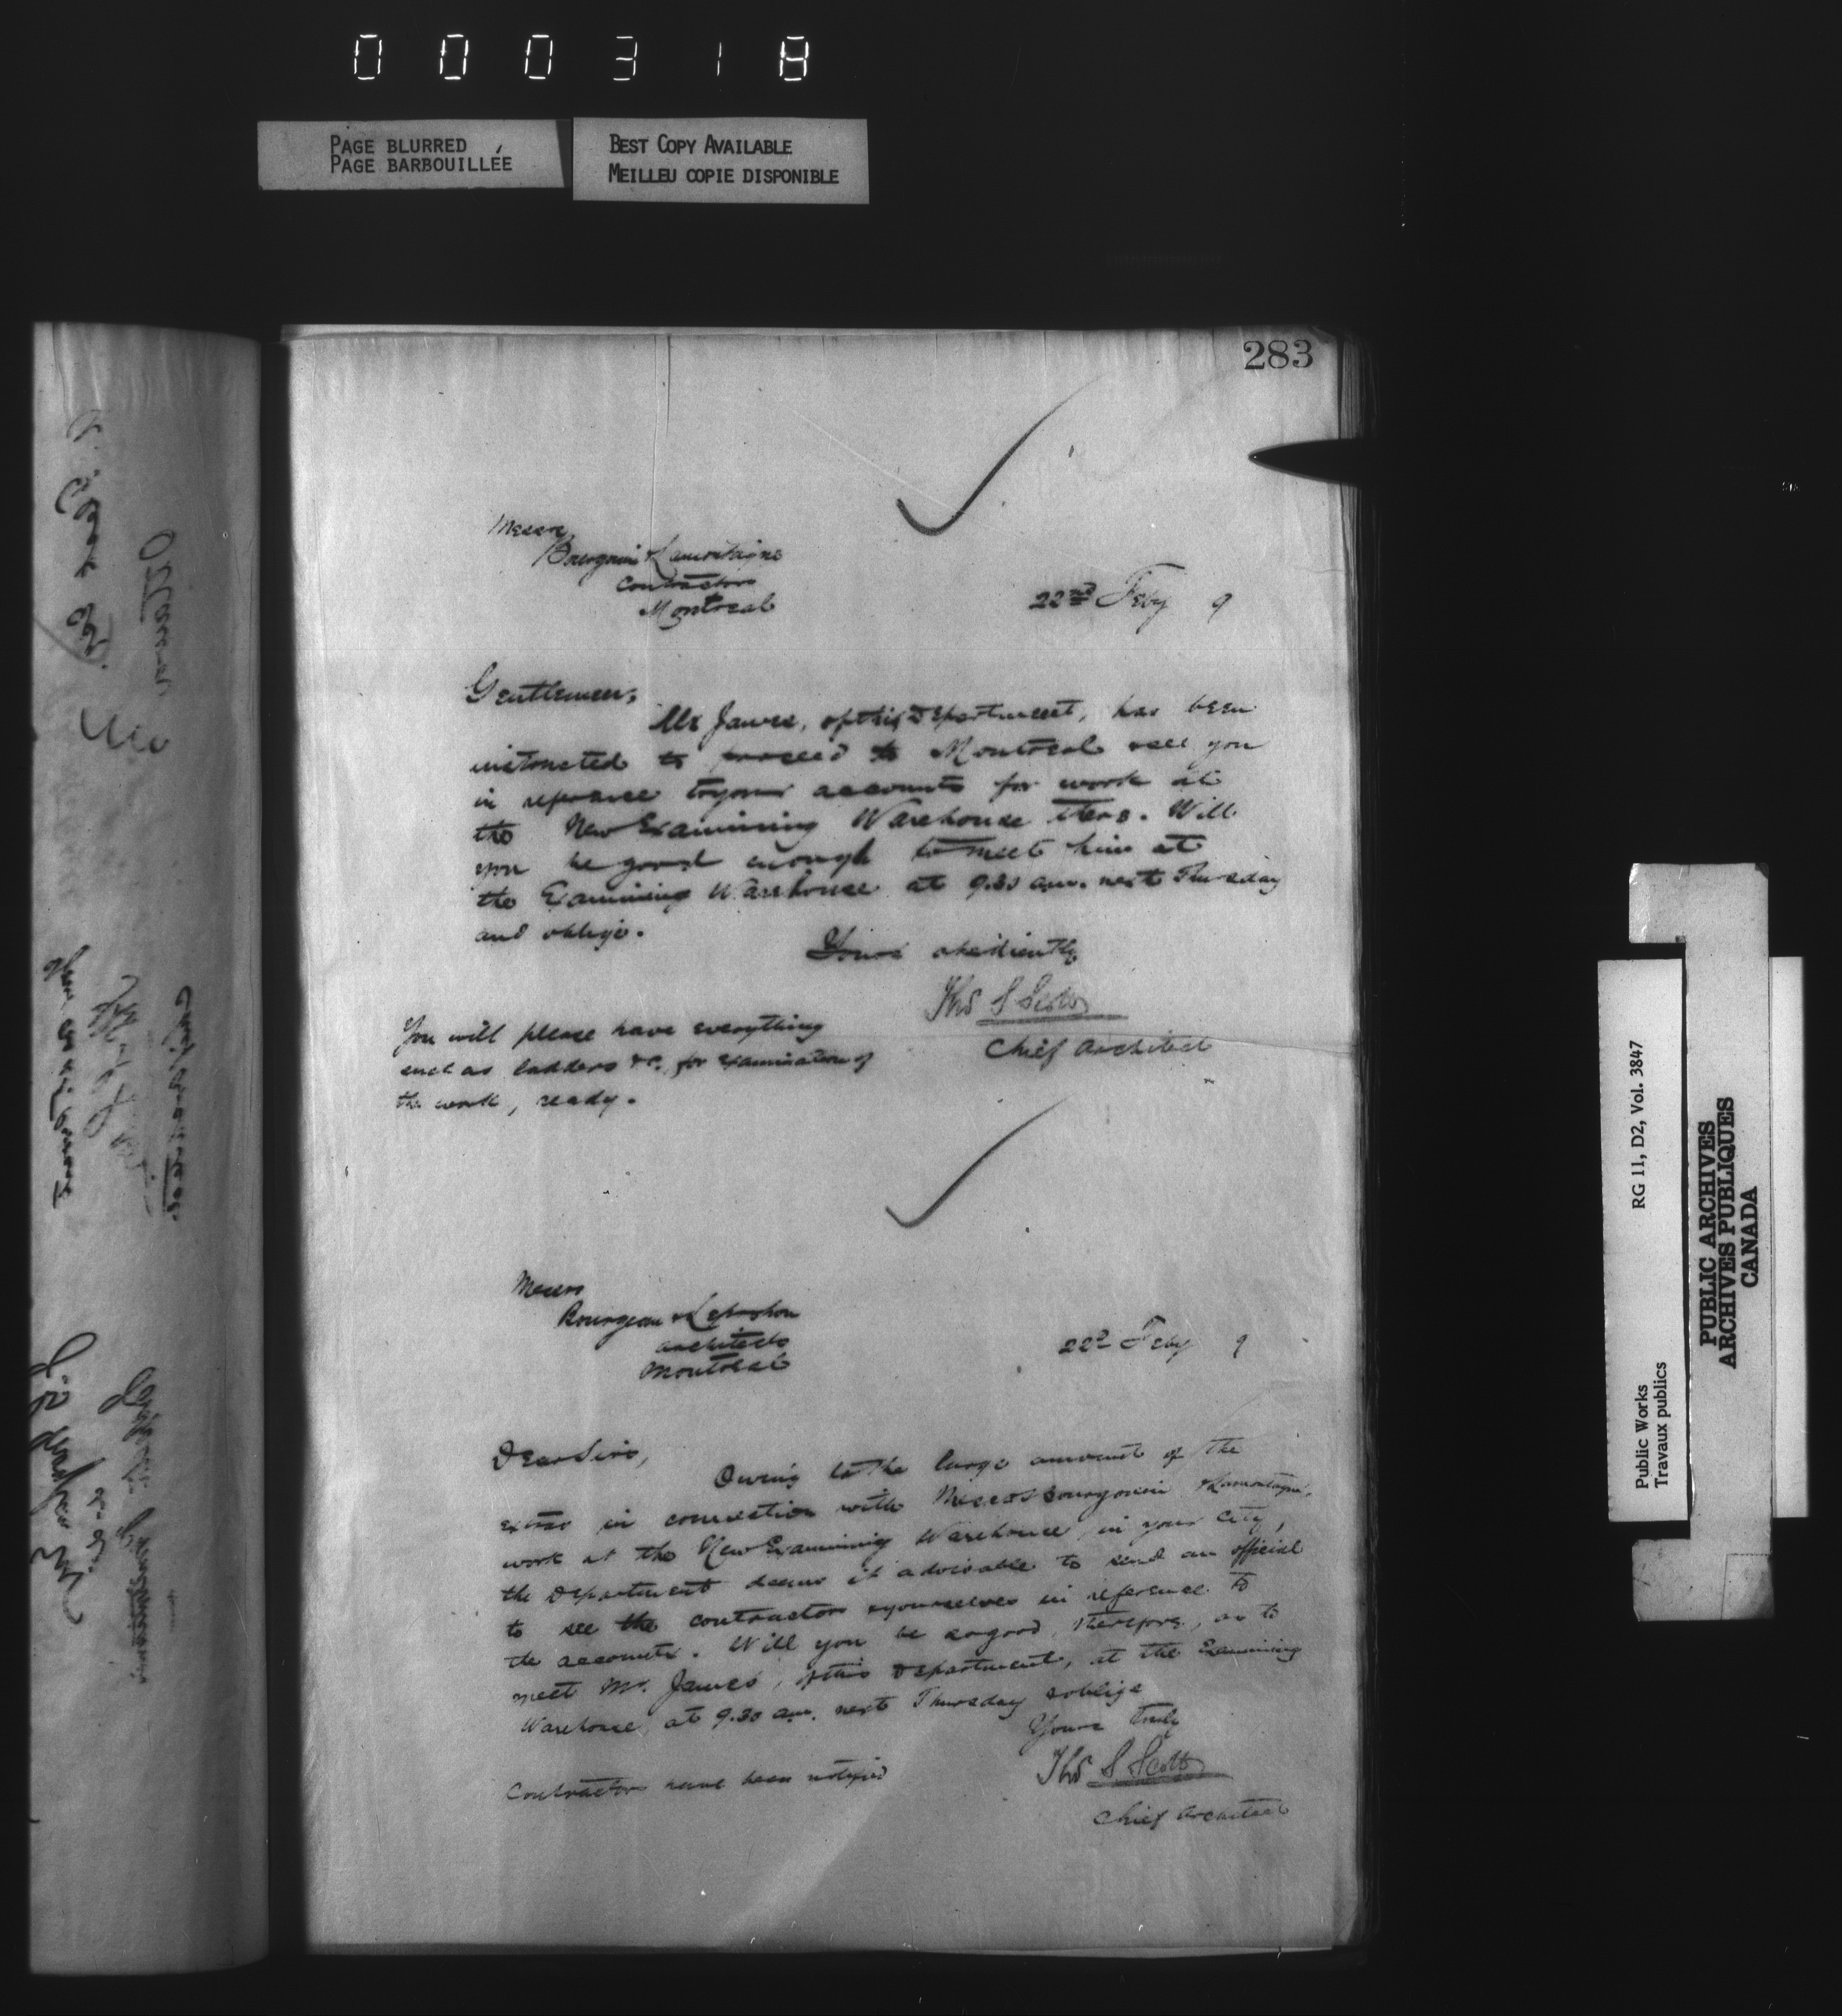 000318
PAGE BLURRED
PAGE BARBOUILLÉE
BEST COPY AVAILABLE
MEILLEU COPIE DISPONIBLE
283
Messrs
Bourgouin & Lamontagne
Contractors
Montreal
22nd Feby 9
Gentlemen,
Mr James, of this Department, has been
instructed to proceed to Montreal & see you
in reference to your accounts for work at
the New Examining Warehouse there. Will
you be good enough to meet him at
the Examining Warehouse at 9.30 am. next Thursday
and oblige.
Yours obediently
Thos S Scott
Chief Architect
You will please have everything
such as ladders &c. for examination of
the work, ready.
Messrs
Bourgeau & Leprohon
architects
Montreal
22d Feby 9
Dear Sirs,
Owing to the large amount of the
extras in connection with Messrs Bourgouin & Lamontagne,
work at the New Examining Warehouse, in your City,
the Department deems it advisable to send an official
to see the contractors & yourselves in reference to
the accounts. Will you be so good, therefore, as to
meet Mr. James, of this Department, at the Examining
Warehouse, at 9.30 am. next Thursday & oblige
Yours truly
Thos S Scott
Chief Architect
Contractors have been notified
Public Works
Travaux publics
RG 11, D2, Vol. 3847
PUBLIC ARCHIVES
ARCHIVES PUBLIQUES
CANADA